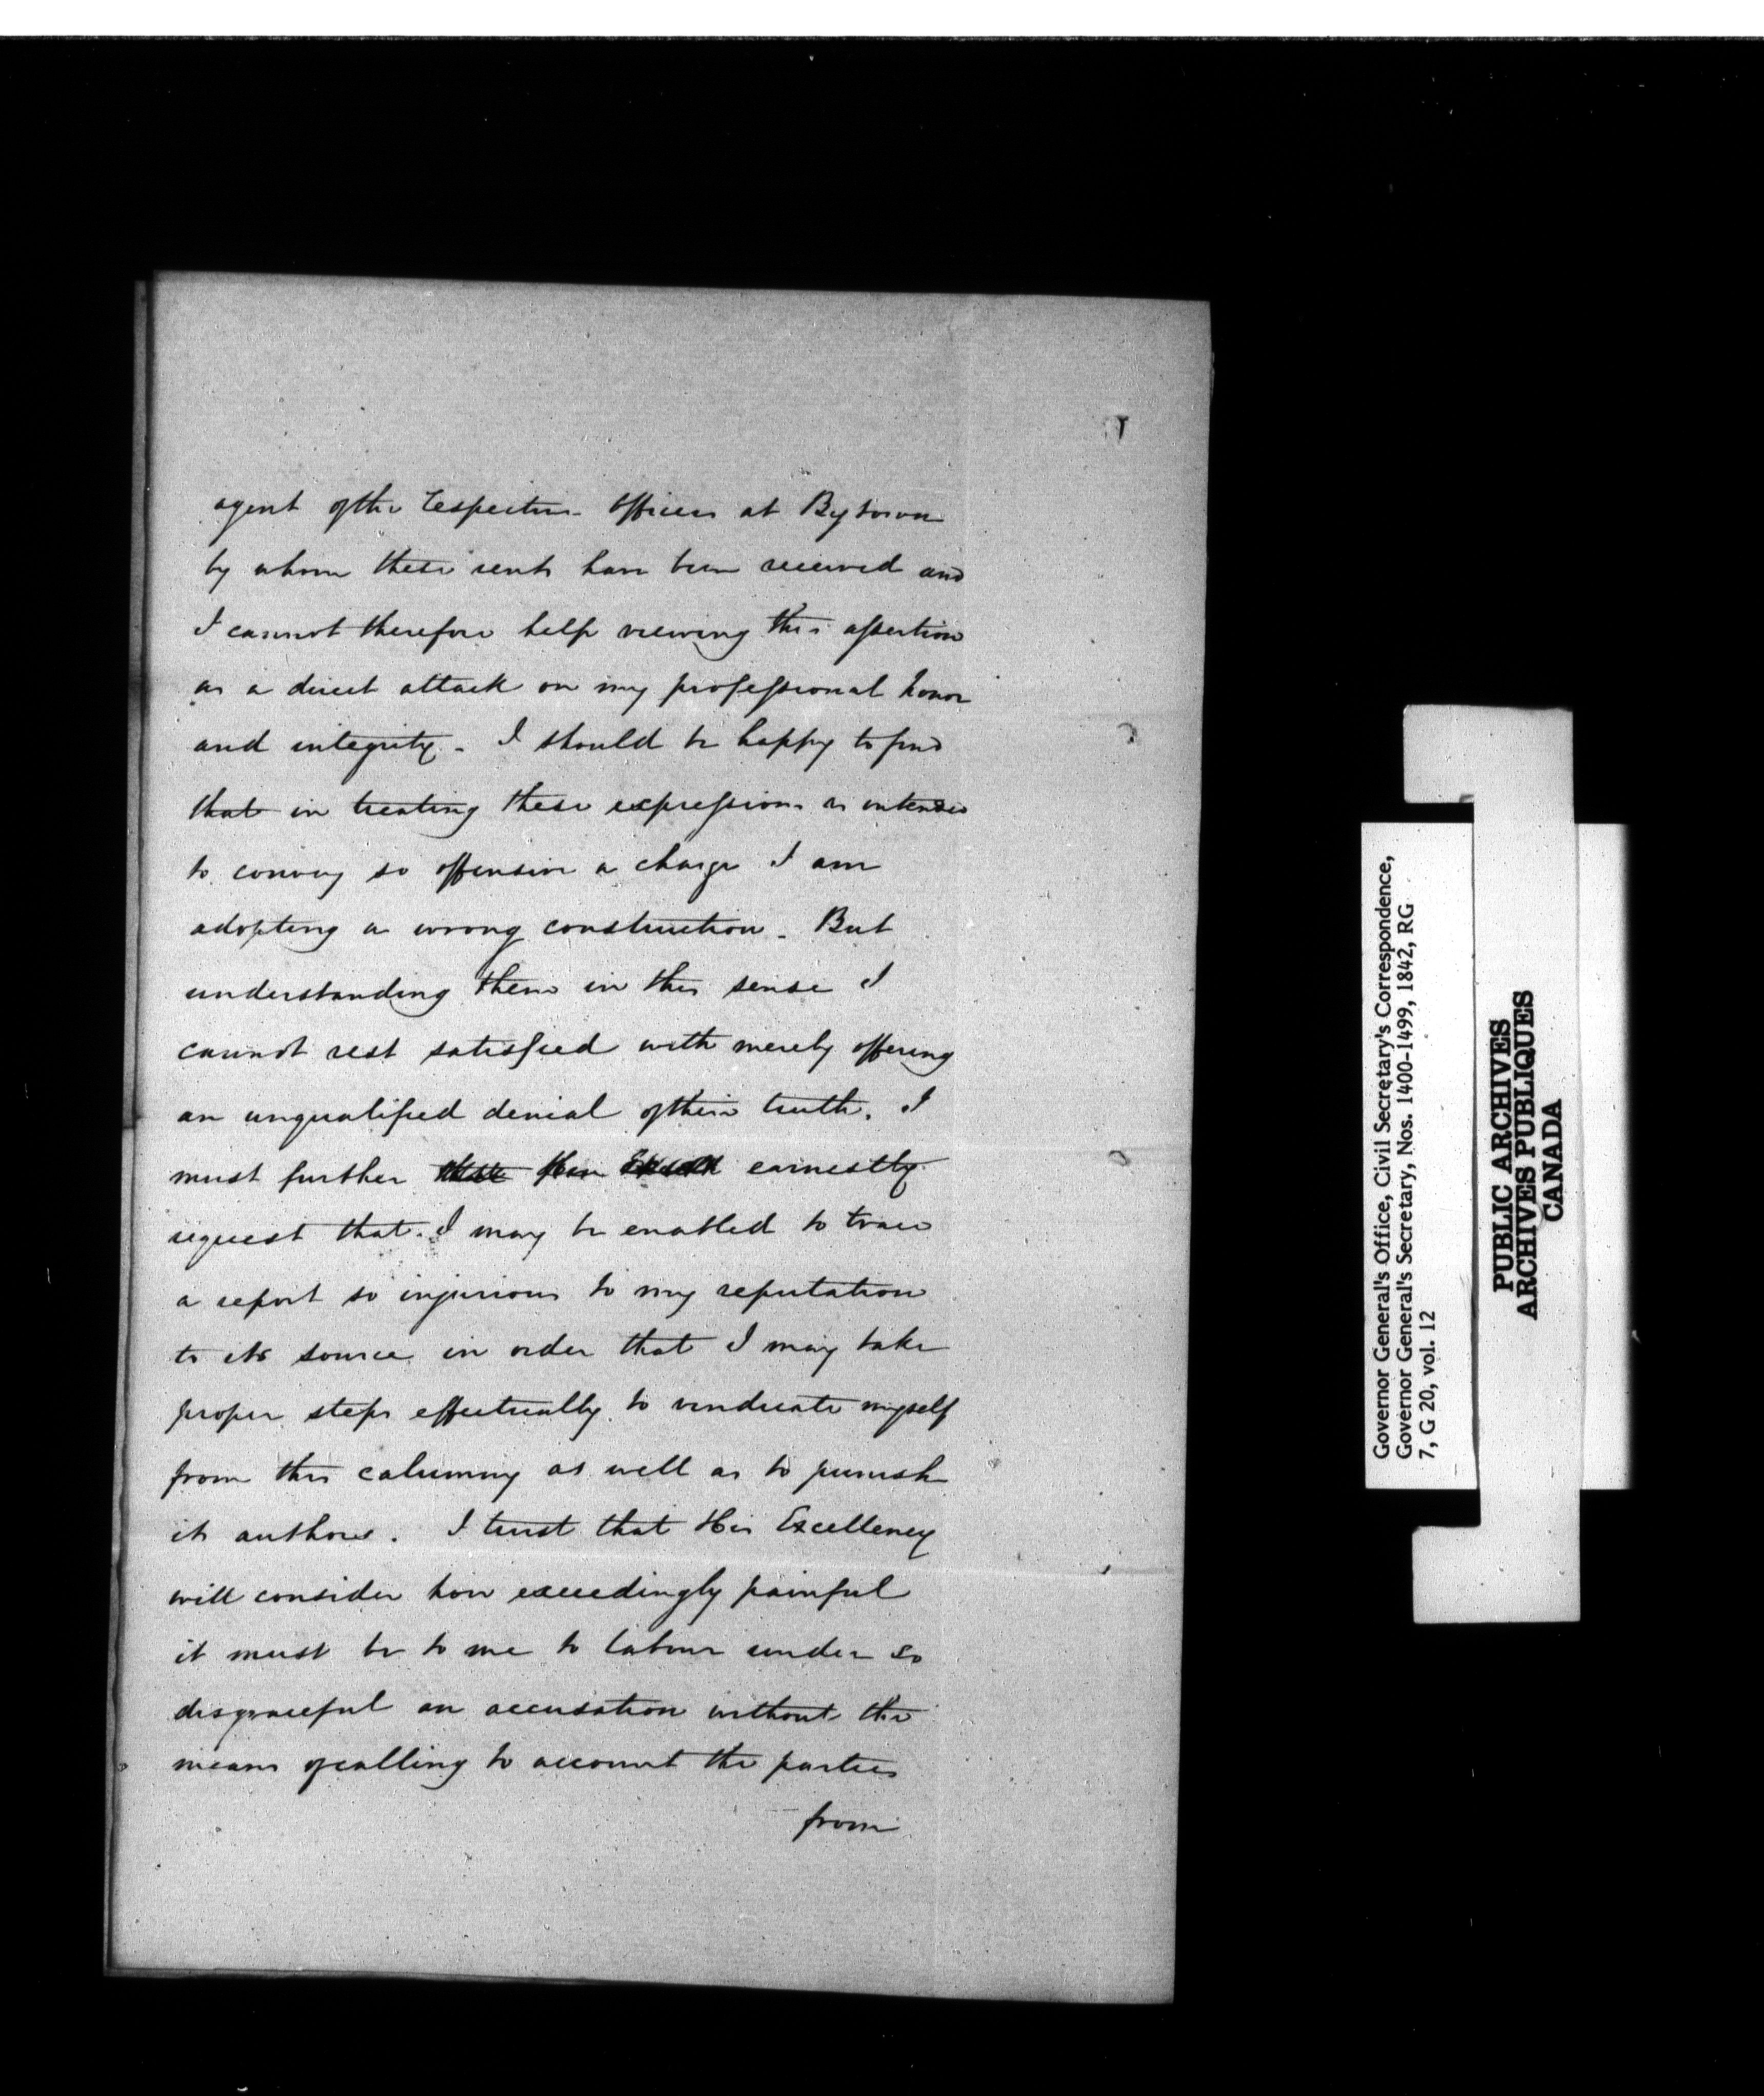 agent of the respective officers at Bytown
by whom these rents have been received and
I cannot therefore help viewing this assertion
as a direct attack on my professional honor
and integrity - I should be happy to find
that in treating these expressions as intended
to convey so offensive a charge I am
adopting a wrong construction - But
understanding them in this sense I
cannot rest satisfied with merely offering
an unqualified denial of their truth. I
must further earnestly
request that I may be enabled to trace
a report so injurious to my reputation
to its source in order that I may take
proper steps effectually to vindicate myself
from this calumny as well as to punish
its authors. I trust that His Excellency
will consider how exceedingly painful
it must be to me to labour under so
disgraceful an accusation without the
means of calling to account the parties
from
Governor General's Office, Civil Secretary's Correspondence,
Governor General's Secretary, Nos. 1400-1499, 1842, RG
7, G 20, vol. 12
PUBLIC ARCHIVES
ARCHIVES PUBLIQUES
CANADA